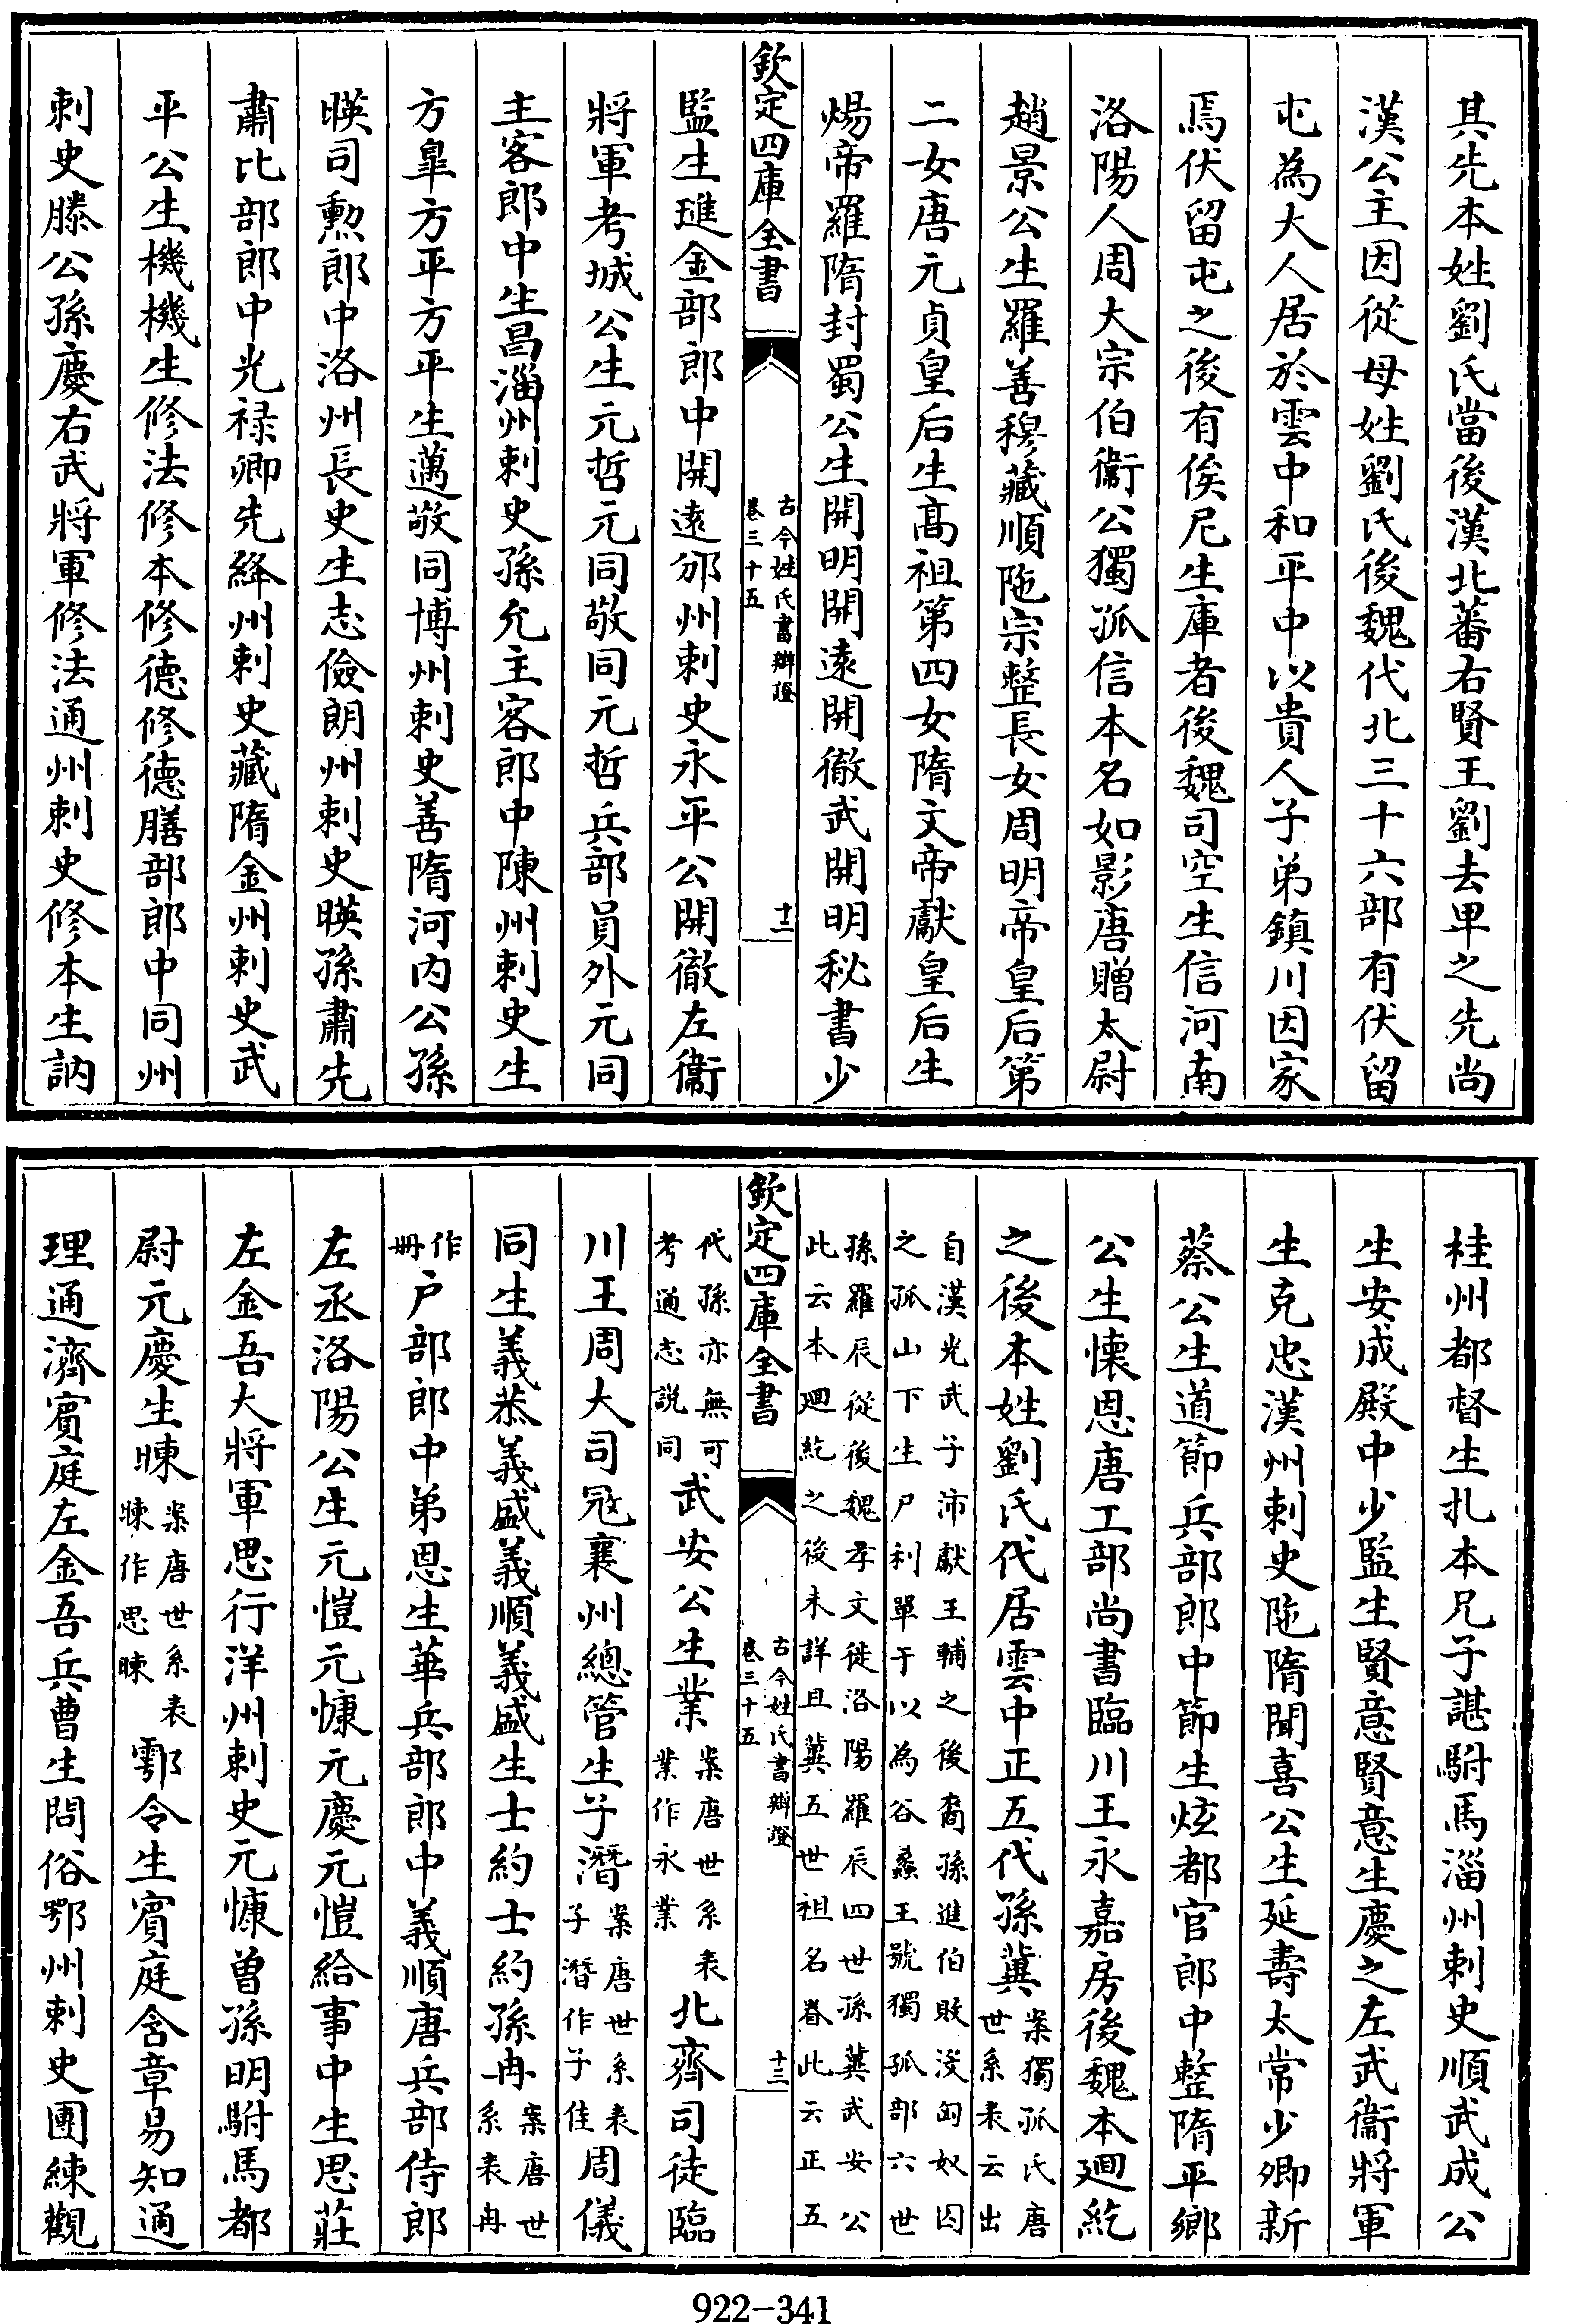 其先本姓劉氏當後漢北蕃右賢王劉去卑之先尚
漢公主因從母姓劉氏後魏代北三十六部有伏留
屯為大人居於雲中和平中以貴人子弟鎮川因家
焉伏留屯之後有俟尼生庫者後魏司空生信河南
洛陽人周大宗伯衞公獨孤信本名如影唐贈太尉
趙景公生羅善穆藏順陁宗整長女周明帝皇后第
二女唐元貞皇后生髙祖第四女隋文帝獻皇后生
煬帝羅隋封蜀公生開明開逺開徹武開明秘書少
欽定四庫全書
古今姓氏書辯證
卷三十五
十二
監生璡金部郎中開逺邠州刺史永平公開徹左衞
將軍考城公生元哲元同敬同元哲兵部員外元同
主客郎中生昌淄州刺史孫允主客郎中陳州刺史生
方臯方平方平生邁敬同博州刺史善隋河内公孫
暎司勲郎中洛州長史生志儉朗州刺史暎孫肅先
肅比部郎中光禄卿先絳州刺史藏隋金州刺史武
平公生機機生修法修本修德修德膳部郎中同州
刺史滕公孫慶右武將軍修法通州刺史修本生訥
桂州都督生札本兄子諶駙馬淄州刺史順武成公
生安成殿中少監生賢意賢意生慶之左武衞將軍
生克忠漢州刺史陁隋聞喜公生延壽太常少卿新
蔡公生道節兵部郎中節生炫都官郎中整隋平鄉
公生懐恩唐工部尚書臨川王永嘉房後魏本廻紇
之後本姓劉氏代居雲中正五代孫冀案獨孤氏唐
世系表云出
自漢光武子沛獻王輔之後裔孫進伯敗没匈奴囚
之孤山下生尸利單于以為谷蠡王號獨孤部六世
孫羅辰從後魏孝文徙洛陽羅辰四世孫冀武安公
此云本廻紇之後未詳且冀五世祖名眷此云正五
欽定四庫全書
古今姓氏書辯證
卷三十五
十三
代孫亦無可
考通志説同武安公生業案唐世系表
業作永業北齊司徒臨
川王周大司冦襄州總管生子潛案唐世系表
子潛作子佳周儀
同生義恭義盛義順義盛生士約士約孫冉案唐世
系表冉
作
冊户部郎中弟恩生華兵部郎中義順唐兵部侍郎
左丞洛陽公生元愷元慷元慶元愷給事中生思莊
左金吾大將軍思行洋州刺史元慷曽孫明駙馬都
尉元慶生㬢案唐世系表
㬢作思㬢鄠令生賓庭含章易知通
理通濟賓庭左金吾兵曹生問俗鄂州刺史團練觀
922-341